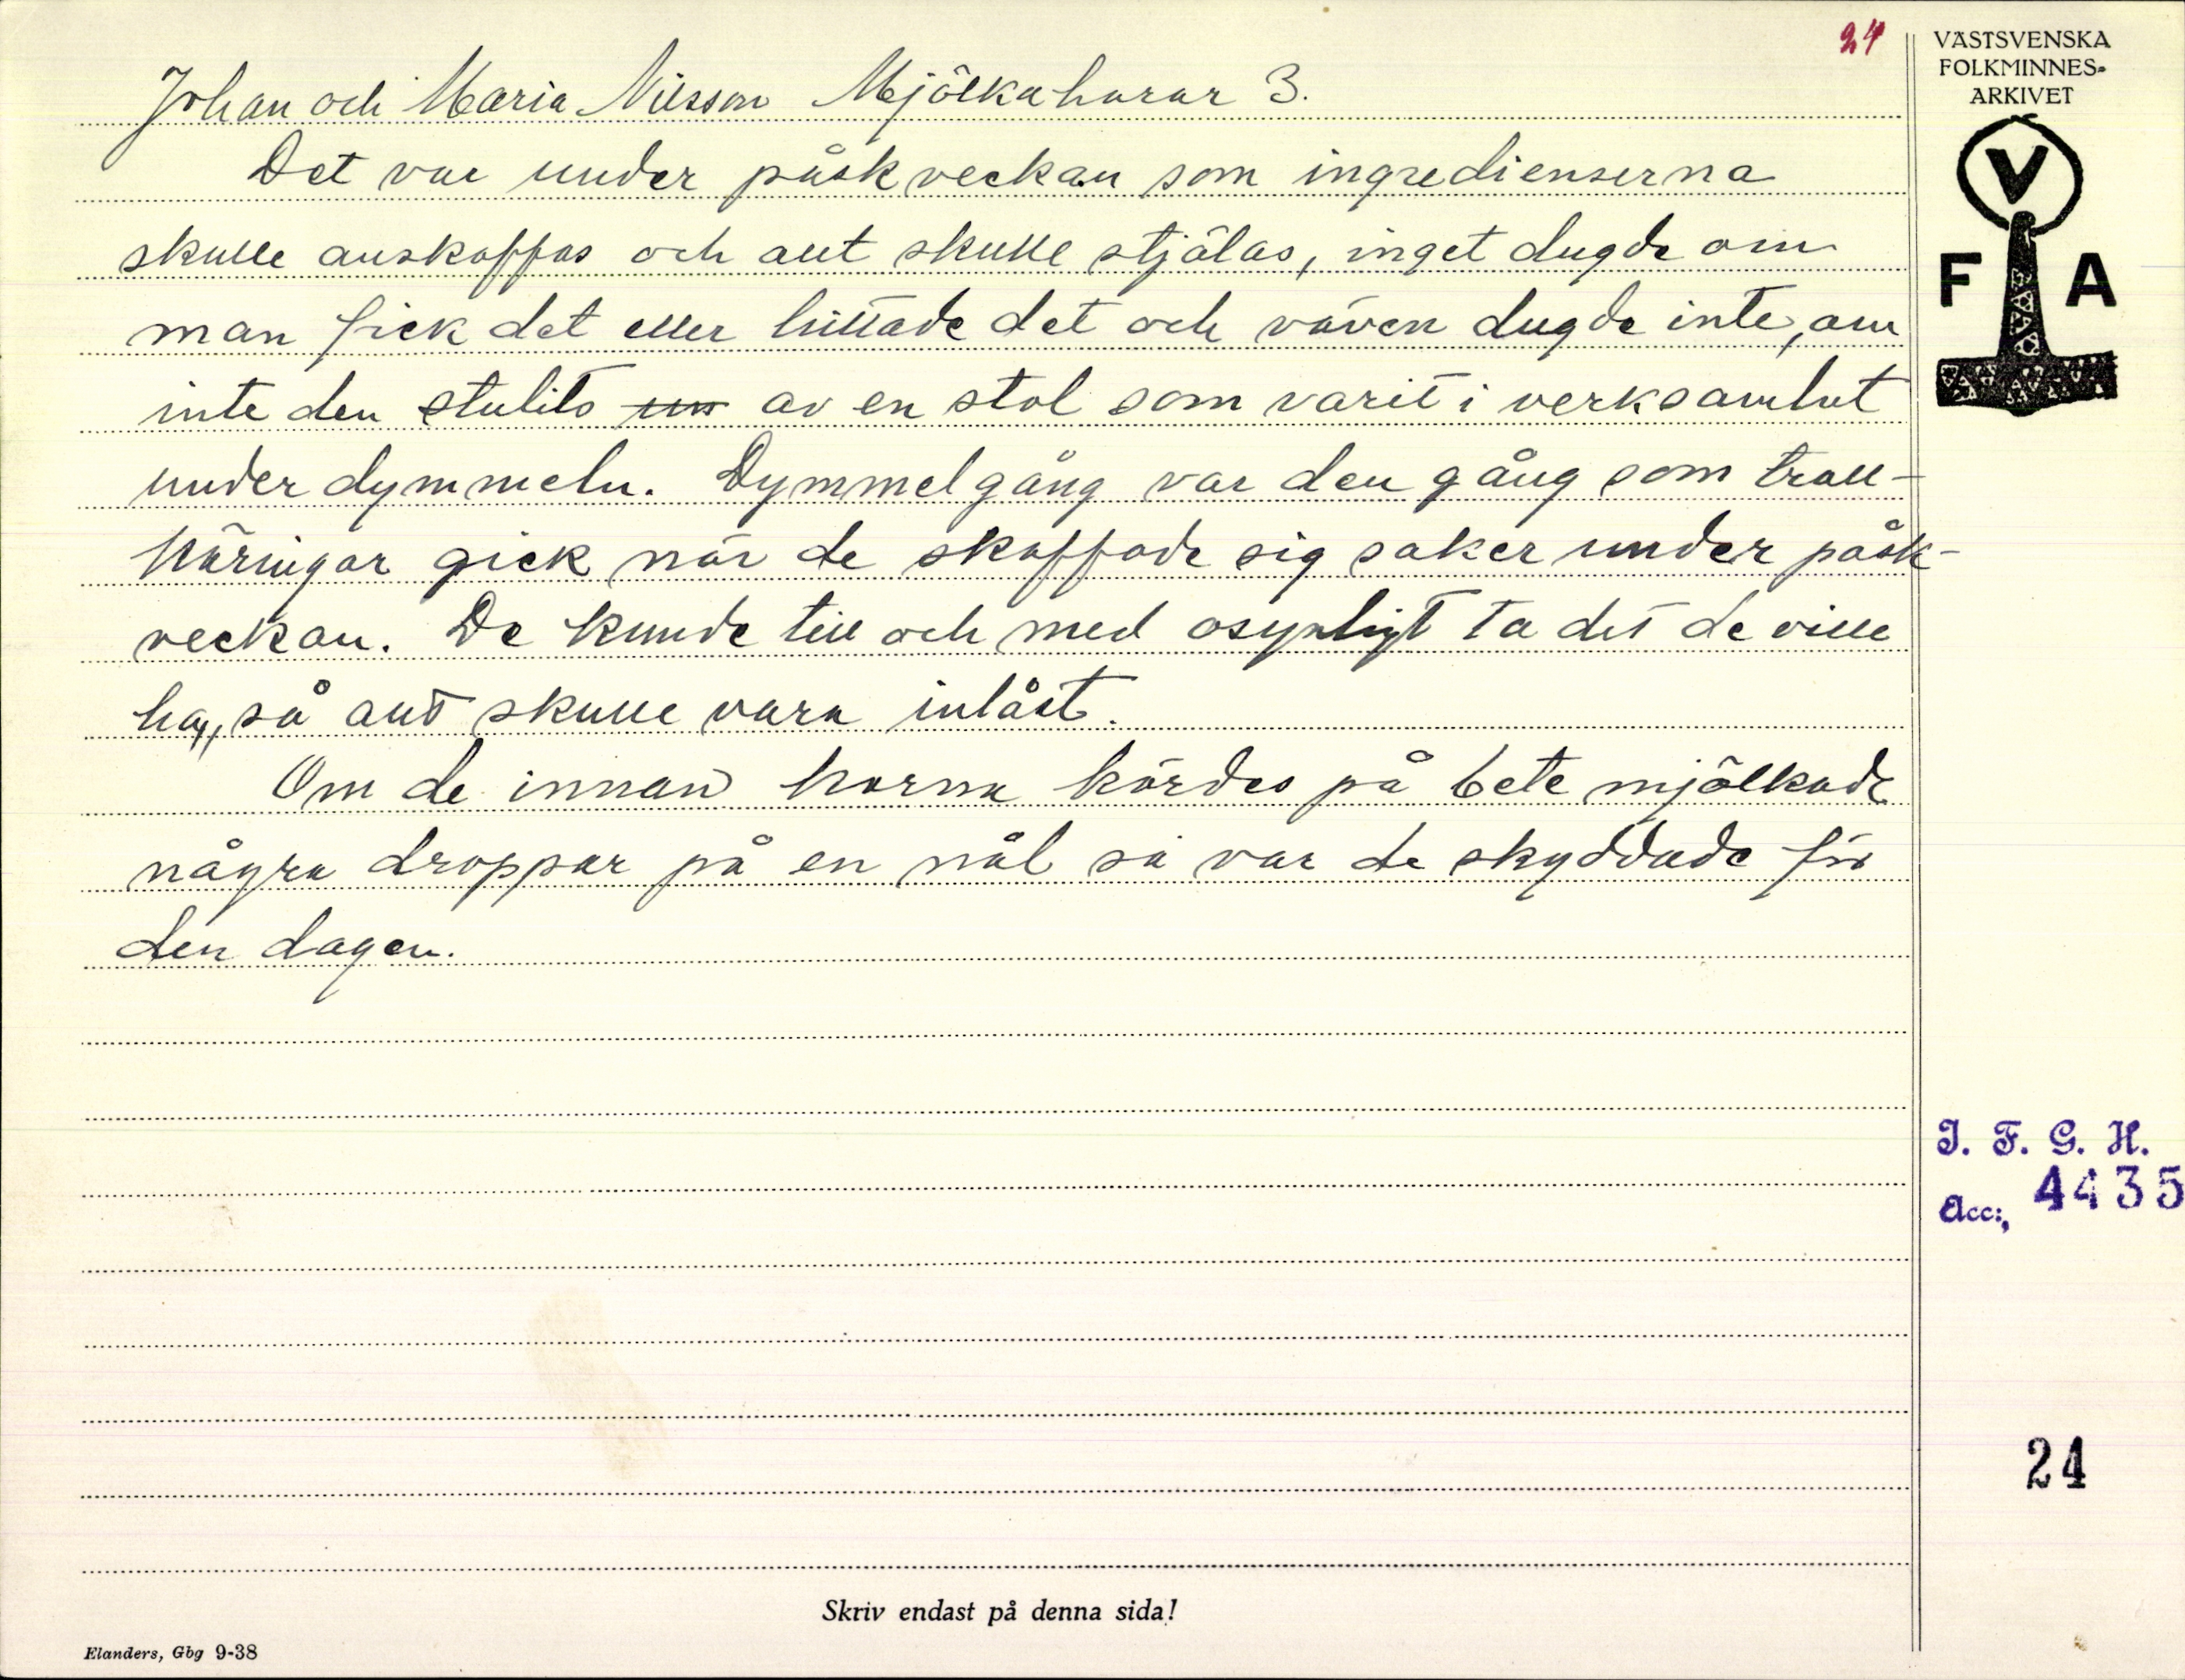 24
Johan och Maria Nilsson Mjölkaharar 3.
Det var under påskveckan som ingredienserna
skulle anskaffas och allt skulle stjälas, inget dugde om
man fick det eller hittade det och väven dugde inte, om
inte den stulits av en stol som varit i verksamhet
under dymmeln. Dymmelgång var den gång som troll-
käringar gick när de skaffade sig saker under påsk-
veckan. De kunde till och med osynligt ta det de ville
ha, så allt skulle vara inlåst.
Om de innan korna kördes på bete mjölkade
några droppar på en nål så var de skyddade för
den dagen.
Skriv endast på denna sida!
Elanders, Gbg 9-38
VÄSTSVENSKA
FOLKMINNES-
ARKIVET
V
F A
I. F. G. H.
Acc:, 4435
24